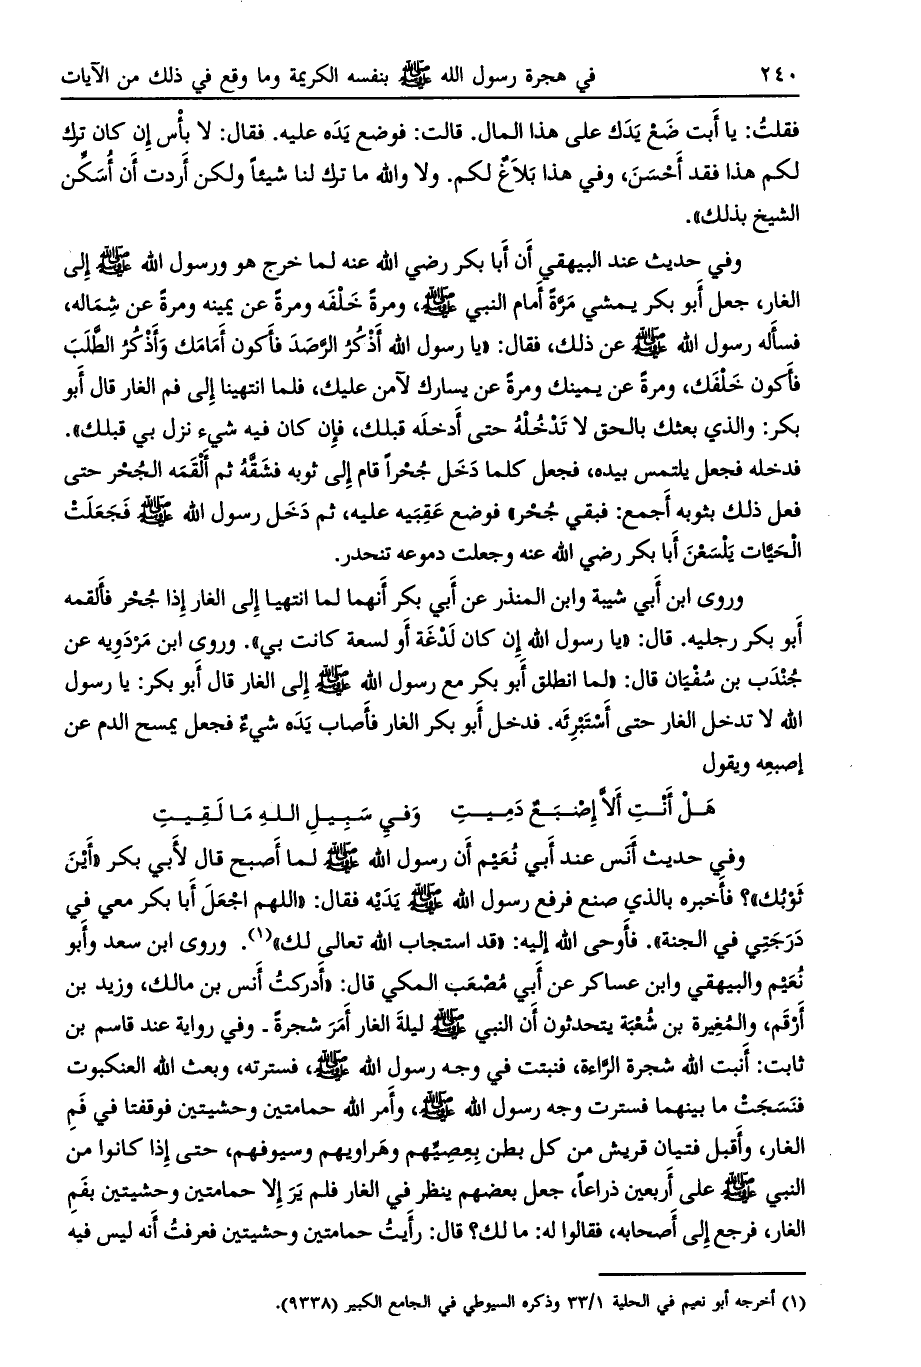 ٢٤٠ في هجرة رسول الله ﷺ بنفسه الكريمة وما وقع في ذلك من الآيات
فقلتُ: يا أَبت ضَعْ يَدَك على هذا المال. قالت: فوضع يَدَه عليه. فقال: لا بأْس إن كان ترك
لكم هذا فقد أَحْسَنَ، وفي هذا بَلاَغٌ لكم. ولا والله ما ترك لنا شيئاً ولكن أَردت أَن أُسَكِّن
الشيخ بذلك».
وفي حديث عند البيهقي أَن أَبا بكر رضي الله عنه لما خرج هو ورسول الله ﷺ إلى
الغار، جعل أَبو بكر يمشي مَرَّةً أَمام النبي ﷺ، ومرةً خَلْفَه ومرةً عن يمينه ومرةً عن شِمَاله،
فسأَله رسول الله ﷺ عن ذلك، فقال: «يا رسول الله أَذْكُرُ الرَّصَدَ فأَكون أَمَامَك وَأَذْكُرُ الطَّلَبَ
فأَكون خَلْفَك، ومرةً عن يمينك ومرةً عن يسارك لآمن عليك، فلما انتهينا إلى فم الغار قال أَبو
بكر: والذي بعثك بالحق لا تَدْخُلْهُ حتى أَدخلَه قبلك، فإن كان فيه شيء نزل بي قبلك».
فدخله فجعل يلتمس بيده، فجعل كلما دَخَل جُحْراً قام إلى ثوبه فشَقَّهُ ثم أَلْقَمَه الجُحْر حتى
فعل ذلك بثوبه أَجمع: فبقي جُحْر» فوضع عَقِبَيه عليه، ثم دَخَل رسول الله ﷺ فَجَعَلَتْ
الْحَيَّات يَلْسَعْنَ أَبا بكر رضي الله عنه وجعلت دموعه تنحدر.
وروى ابن أَبي شيبة وابن المنذر عن أَبي بكر أَنهما لما انتهيا إلى الغار إذا جُحْر فأَلقمه
أَبو بكر رجليه. قال: «يا رسول الله إن كان لَدْغَة أَو لسعة كانت بي». وروى ابن مَرْدَوِيه عن
جُنْدَب بن سُفْيَان قال: «لما انطلق أَبو بكر مع رسول الله ﷺ إلى الغار قال أَبو بكر: يا رسول
الله لا تدخل الغار حتى أَسْتَبْرِئَه. فدخل أَبو بكر الغار فأَصاب يَدَه شيءٌ فجعل يمسح الدم عن
إصبعِه ويقول
هَلْ أَنْتِ ألاَّ إصْبَعٌ دَمِيتِ وَفِي سَبِيلِ اللهِ مَا لَقِيتِ
وفي حديث أَنَس عند أَبي نُعَيْم أَن رسول الله ﷺ لما أَصبح قال لأَبي بكر «أَيْنَ
ثَوْبُك»؟ فأَخبره بالذي صنع فرفع رسول الله ﷺ يَدَيْه فقال: «اللهم اجْعَلَ أَبا بكر معي في
دَرَجَتِي في الجنة». فأَوحى الله إليه: «قد استجاب الله تعالى لك»(١). وروى ابن سعد وأَبو
نُعَيْم والبيهقي وابن عساكر عن أَبي مُصْعَب المكي قال: «أَدركتُ أَنس بن مالك، وزيد بن
أَرْقَم، والمُغِيرة بن شُعْبَة يتحدثون أَن النبي ﷺ ليلةَ الغار أَمَرَ شجرةً ـ وفي رواية عند قاسم بن
ثابت: أَنبت الله شجرة الرَّاءة، فنبتت في وجه رسول الله ﷺ، فسترته، وبعث الله العنكبوت
فنَسَجَتْ ما بينهما فسترت وجه رسول الله ﷺ، وأَمر الله حمامتين وحشيتين فوقفتا في فَمِ
الغار، وأَقبل فتيان قريش من كل بطن بِعِصِيِّهم وهَراوِيهم وسيوفهم، حتى إذا كانوا من
النبي ﷺ على أَربعين ذراعاً، جعل بعضهم ينظر في الغار فلم يَرَ إلا حمامتين وحشيتين بفَمِ
الغار، فرجع إلى أَصحابه، فقالوا له: ما لك؟ قال: رأَيتُ حمامتين وحشيتين فعرفتُ أَنه ليس فيه
(١) أخرجه أبو نعيم في الحلية ٣٣/١ وذكره السيوطي في الجامع الكبير (٩٣٣٨).